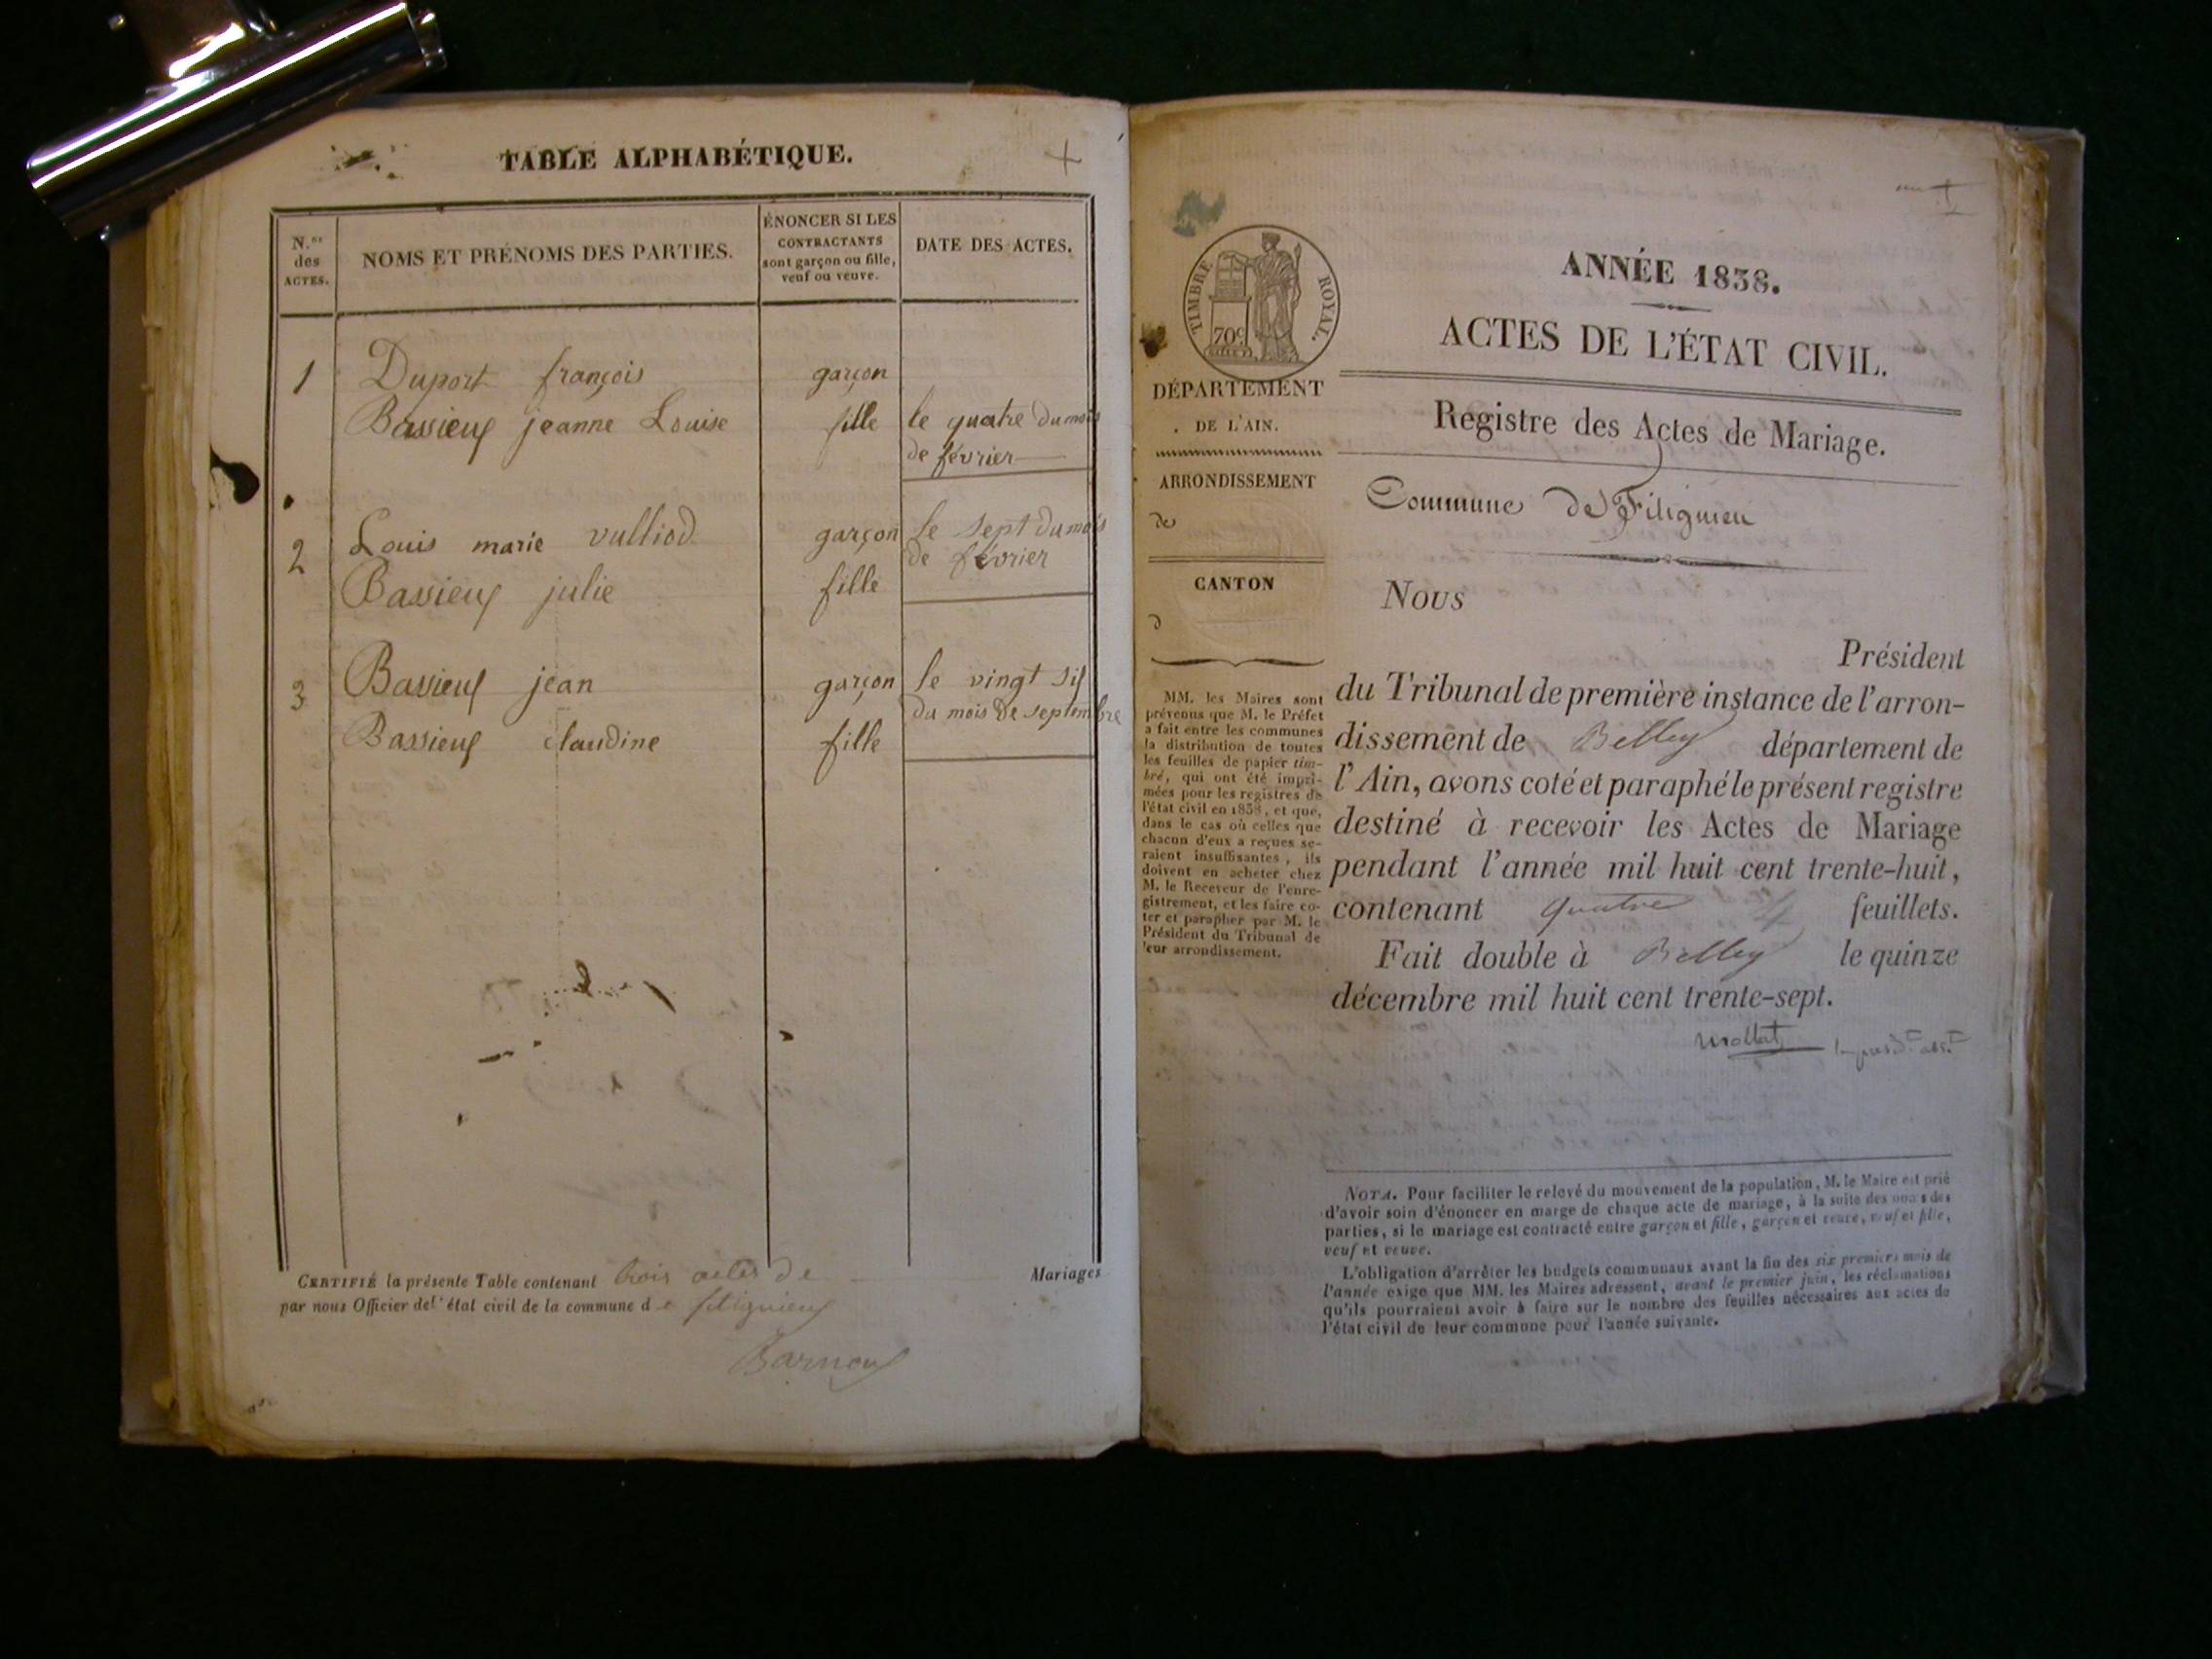 TABLE ALPHABÉTIQUE.
N.os des ACTES.
NOMS ET PRÉNOMS DES PARTIES.
ÉNONCER SI LES
CONTRACTANTS
sont garçon ou fille,
veuf ou veuve.
DATE DES ACTES.
1 Duport françois garçon
Bassieux jeanne Louise fille le quatre du mois
de février
2 Louis marie vulliod garçon le sept du mois
de février
Bassieux julie fille
3 Bassieux jean garçon le vingt six
du mois de septembre
Bassieux claudine fille
CERTIFIÉ la présente Table contenant trois actes de Mariages
par nous Officier de l'état civil de la commune de filignieux
TIMBRE ROYAL.
70c
DÉPARTEMENT
DE L'AIN.
ARRONDISSEMENT
de
CANTON
d
MM. les Maires sont
prévenus que M. le Préfet
a fait entre les communes
la distribution de toutes
les feuilles de papier tim-
bré, qui ont été impri-
mées pour les registres de
l'état civil en 1838, et que,
dans le cas où celles que
chacun d'eux a reçues se-
raient insuffisantes, ils
doivent en acheter chez
M. le Receveur de l'enre-
gistrement, et les faire co-
ter et parapher par M. le
Président du Tribunal de
leur arrondissement.
ANNÉE 1838.
ACTES DE L'ÉTAT CIVIL.
Registre des Actes de Mariage.
Commune de Filignieu
Nous
Président
du Tribunal de première instance de l'arron-
dissement de Belley département de
l'Ain, avons coté et paraphé le présent registre
destiné à recevoir les Actes de Mariage
pendant l'année mil huit cent trente-huit,
contenant quatre 4 feuillets.
Fait double à Belley le quinze
décembre mil huit cent trente-sept.
NOTA. Pour faciliter le relevé du mouvement de la population, M. le Maire est prié
d'avoir soin d'énoncer en marge de chaque acte de mariage, à la suite des noms des
parties, si le mariage est contracté entre garçon et fille, garçon et veuve, veuf et fille,
veuf et veuve.
L'obligation d'arrêter les budgets communaux avant la fin des six premiers mois de
l'année exige que MM. les Maires adressent, avant le premier juin, les réclamations
qu'ils pourraient avoir à faire sur le nombre des feuilles nécessaires aux actes de
l'état civil de leur commune pour l'année suivante.